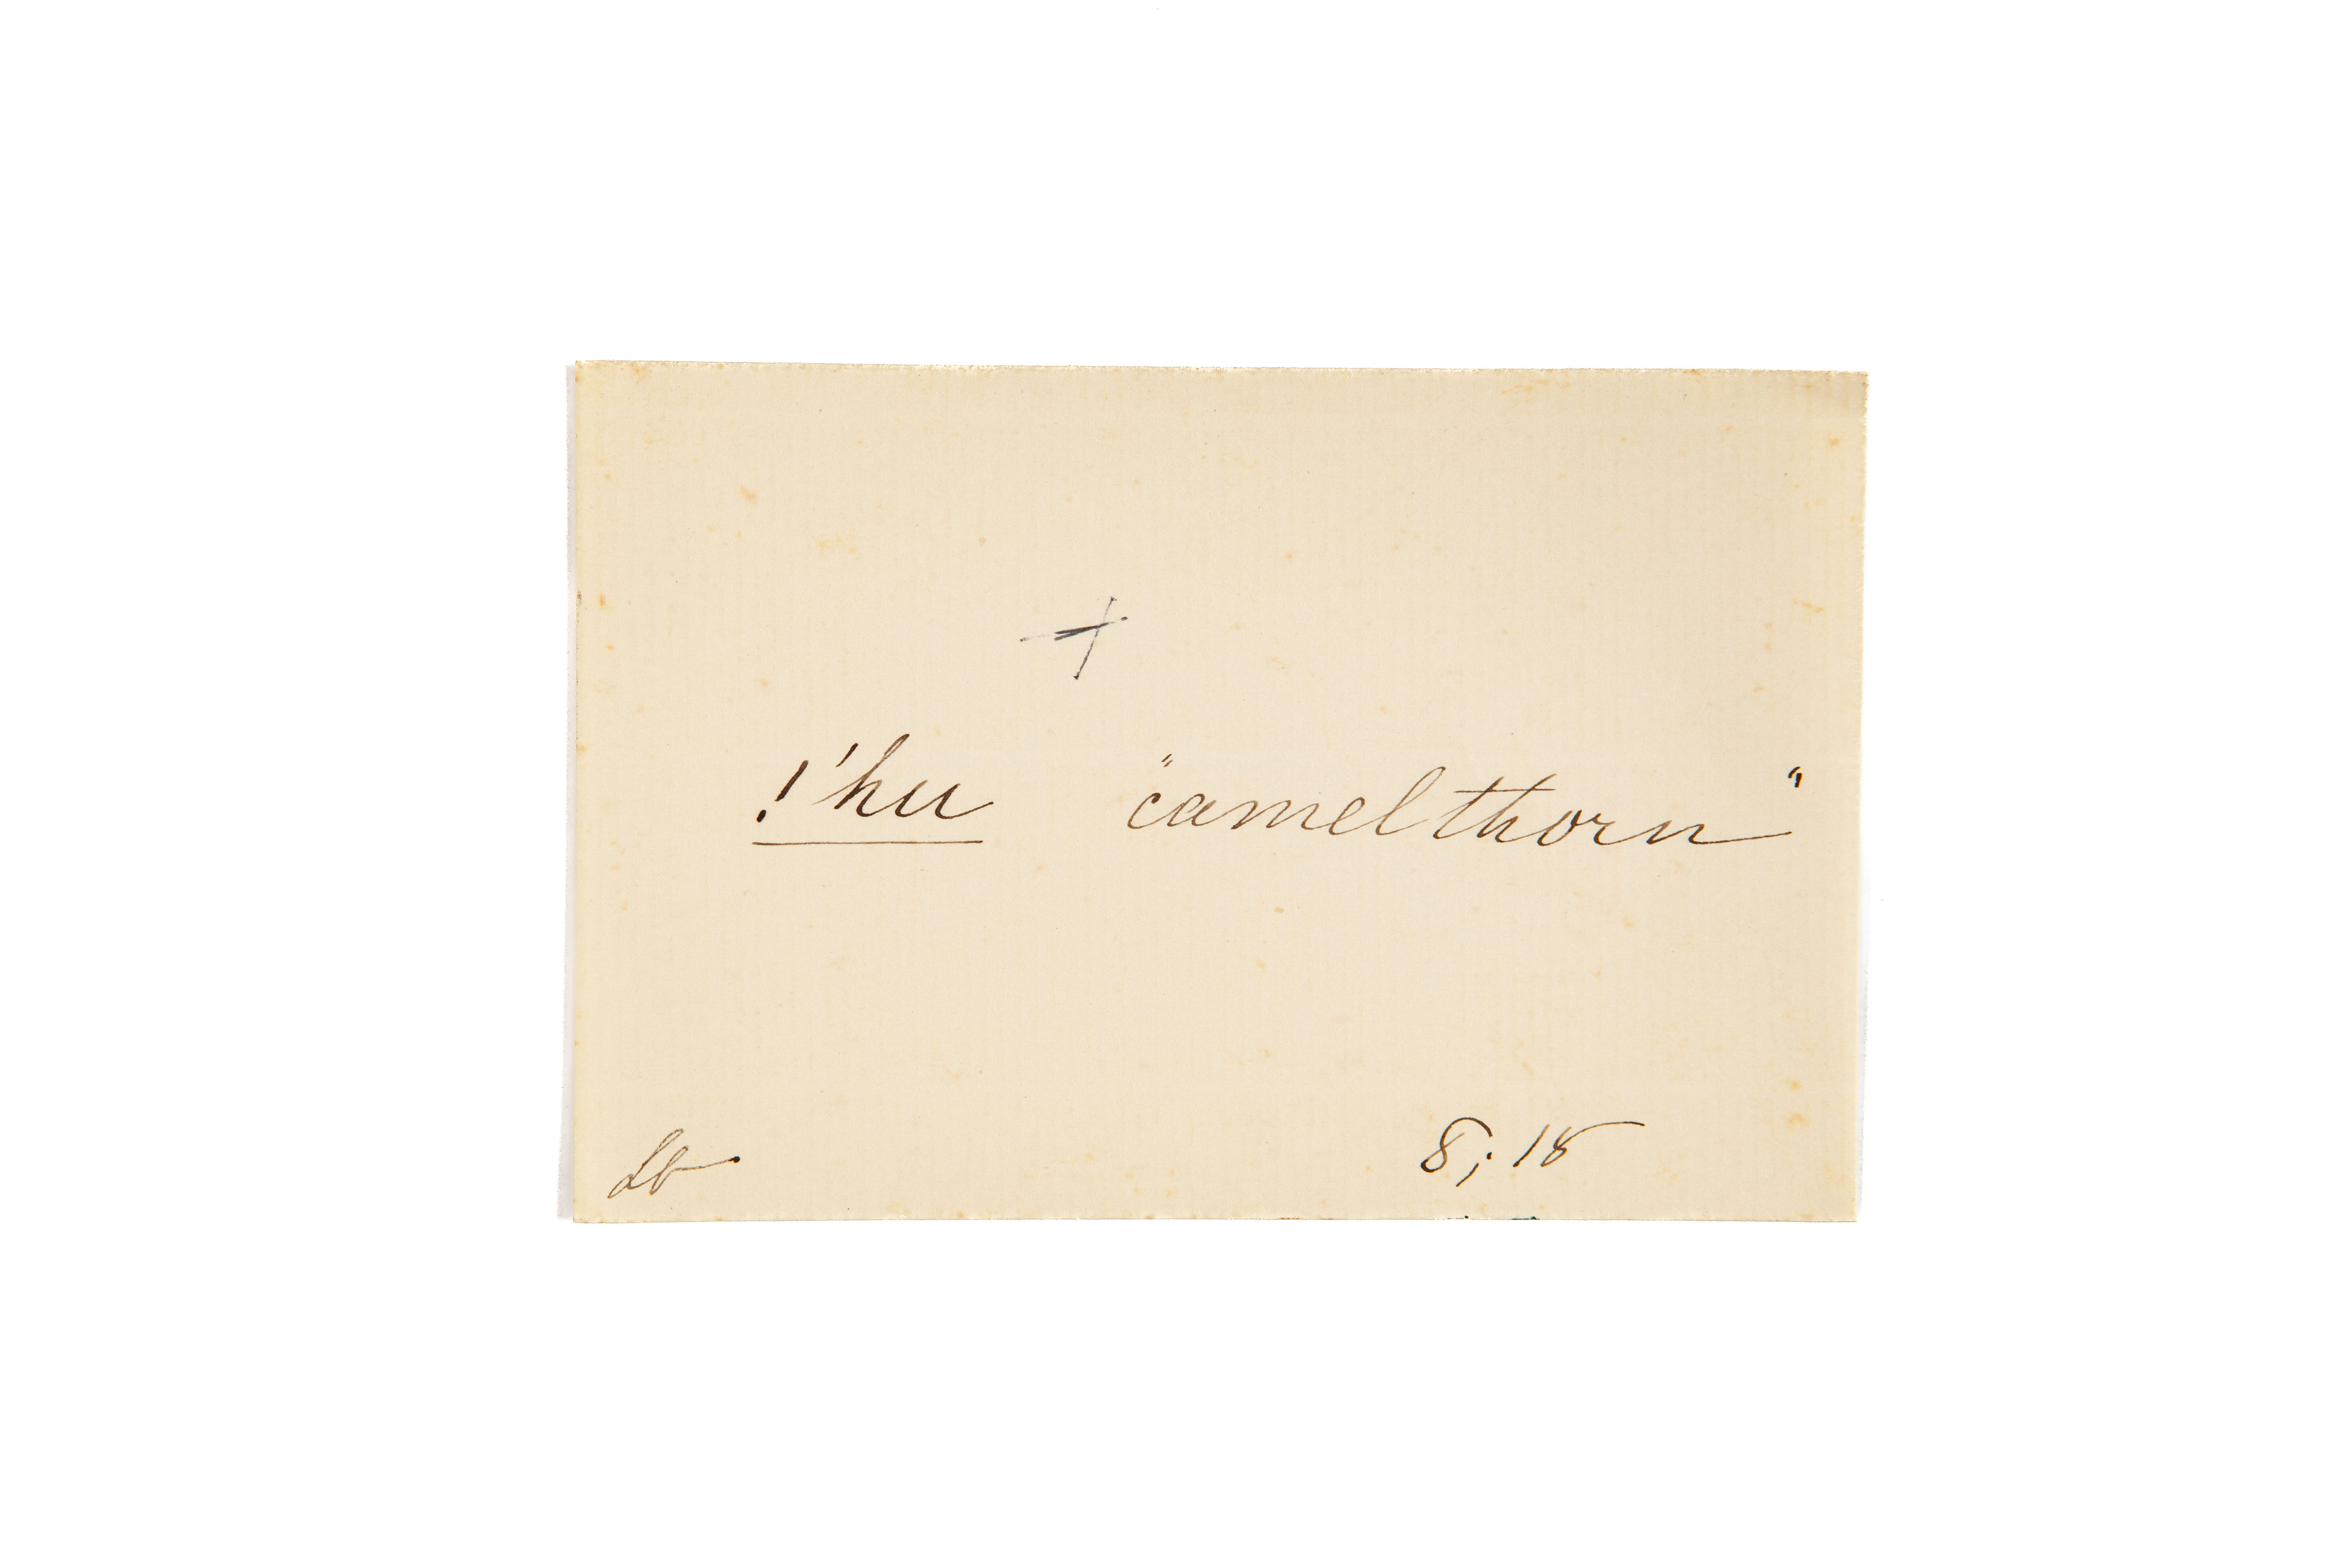 +
!'hu "camelthorn"
8; 18